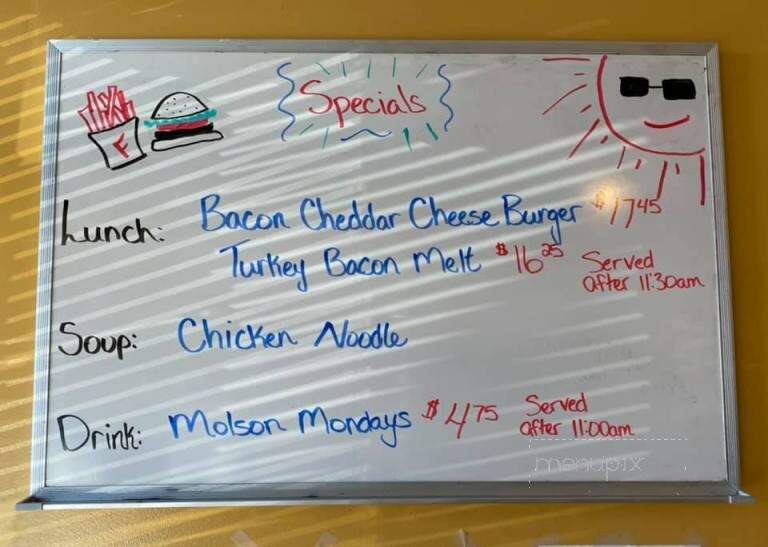 Specials
F
Lunch: Bacon Cheddar Cheese Burger $17.45
Turkey Bacon Melt $16.25 Served
after 11:30am
Soup: Chicken Noodle
Drink: Molson Mondays $4.75 Served
after 11:00am
menupix